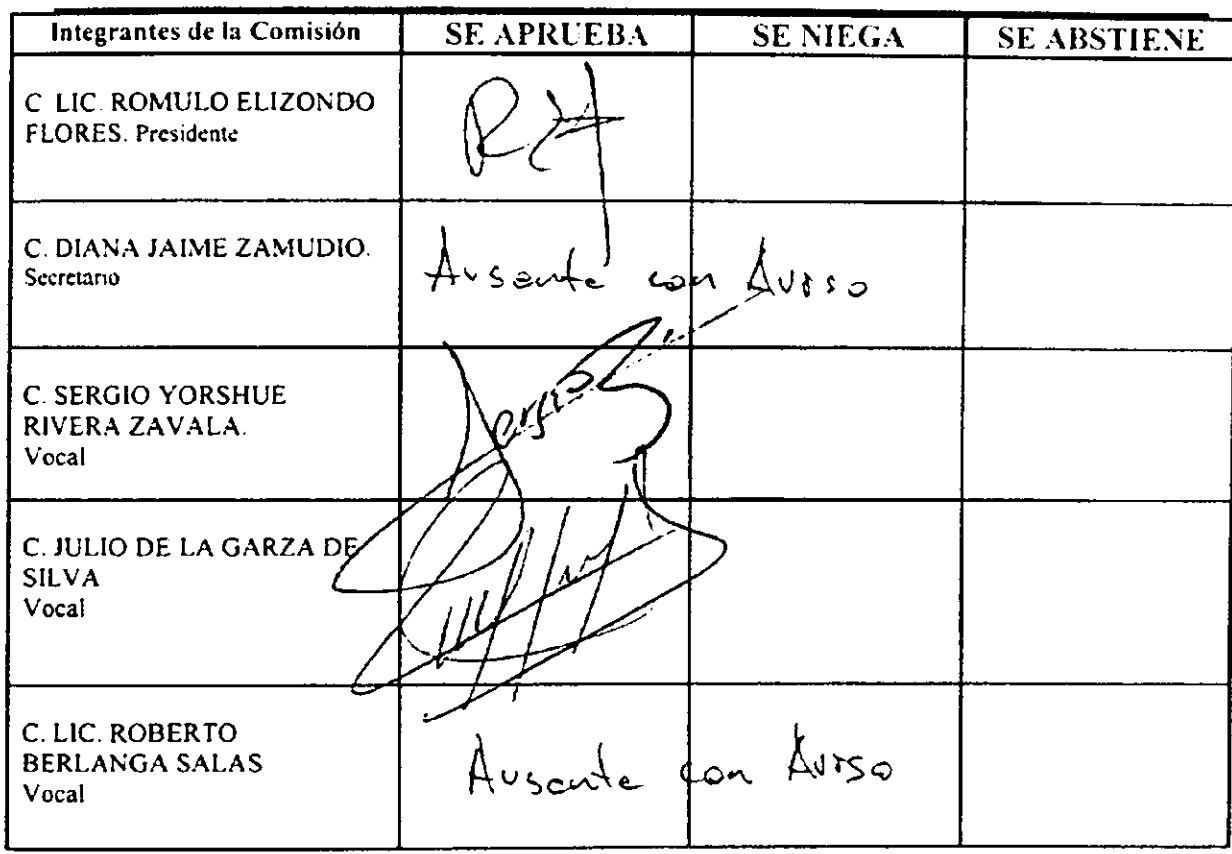 Integrantes de la Comisión SE APRUEBA SE NIEGA SE ABSTIENE
C LIC. ROMULO ELIZONDO
FLORES. Presidente
C. DIANA JAIME ZAMUDIO.
Secretario
Ausente con Aviso
C. SERGIO YORSHUE
RIVERA ZAVALA.
Vocal
Sergio
C. JULIO DE LA GARZA DE
SILVA
Vocal
C. LIC. ROBERTO
BERLANGA SALAS
Vocal
Ausente con Aviso